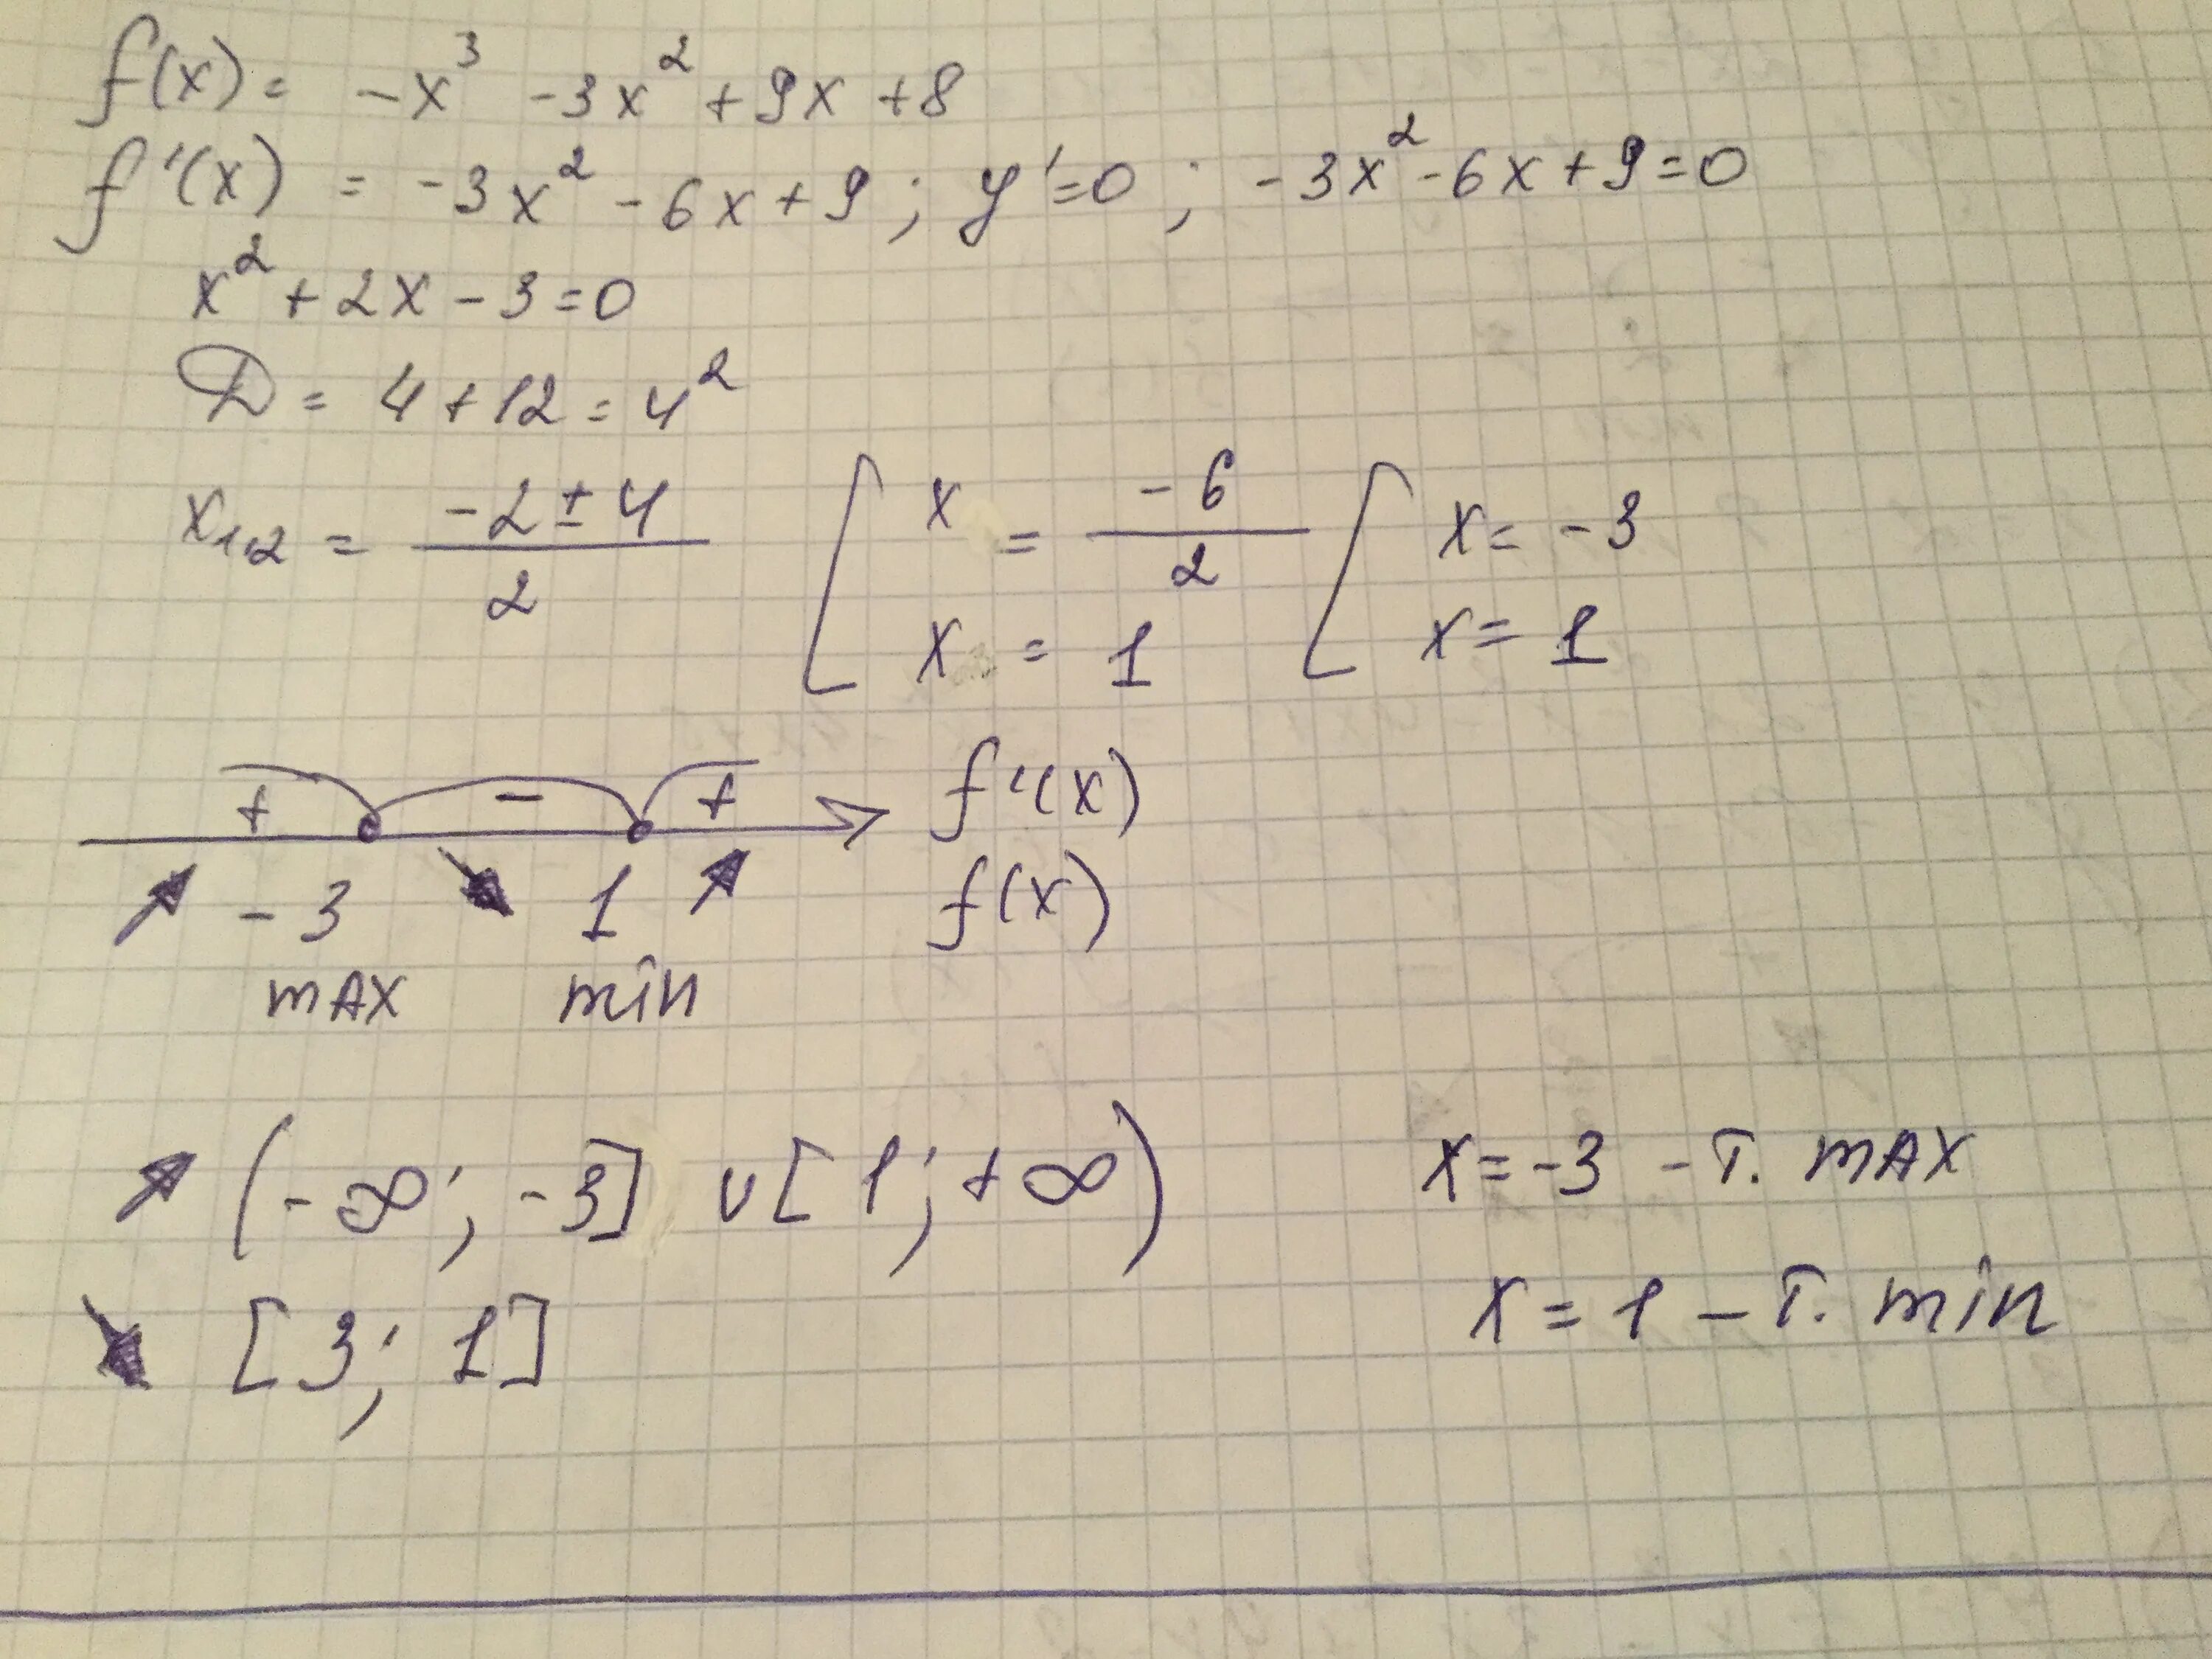 f(x) = -x³ - 3x² + 9x + 8
f'(x) = -3x² - 6x + 9 ; y'=0 ; -3x² - 6x + 9 = 0
x² + 2x - 3 = 0
D = 4 + 12 = 4²
x₁,₂ = (-2 ± 4)/2 [ x = -6/2 [ x = -3
x = 1 x = 1
+ - + f'(x)
-3 1 f(x)
max min
↗ (-∞; -3] ∪ [1; +∞) x = -3 - т. max
↘ [3; 1] x = 1 - т. min